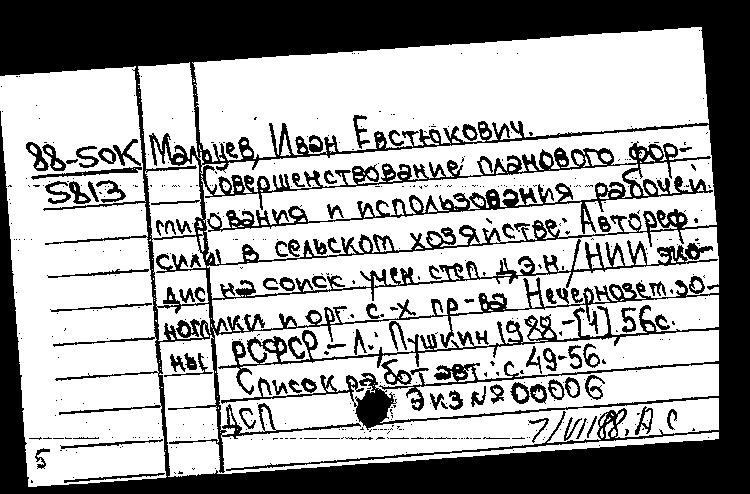 88-50К Мальцев, Иван Евстюкович.
5813 Совершенствование планового фор-
мирования и использования рабочей
силы в сельском хозяйстве: Автореф.
дис на соиск. учен. степ. д.э.н. / НИИ эко-
номики и орг. с.-х. пр-ва Нечернозем. зо-
ны РСФСР. – Л.; Пушкин, 1988. – [1], 56с.
Список работ авт.: с. 49-56.
ДСП Экз № 00006
7/VII88. А.С.
5